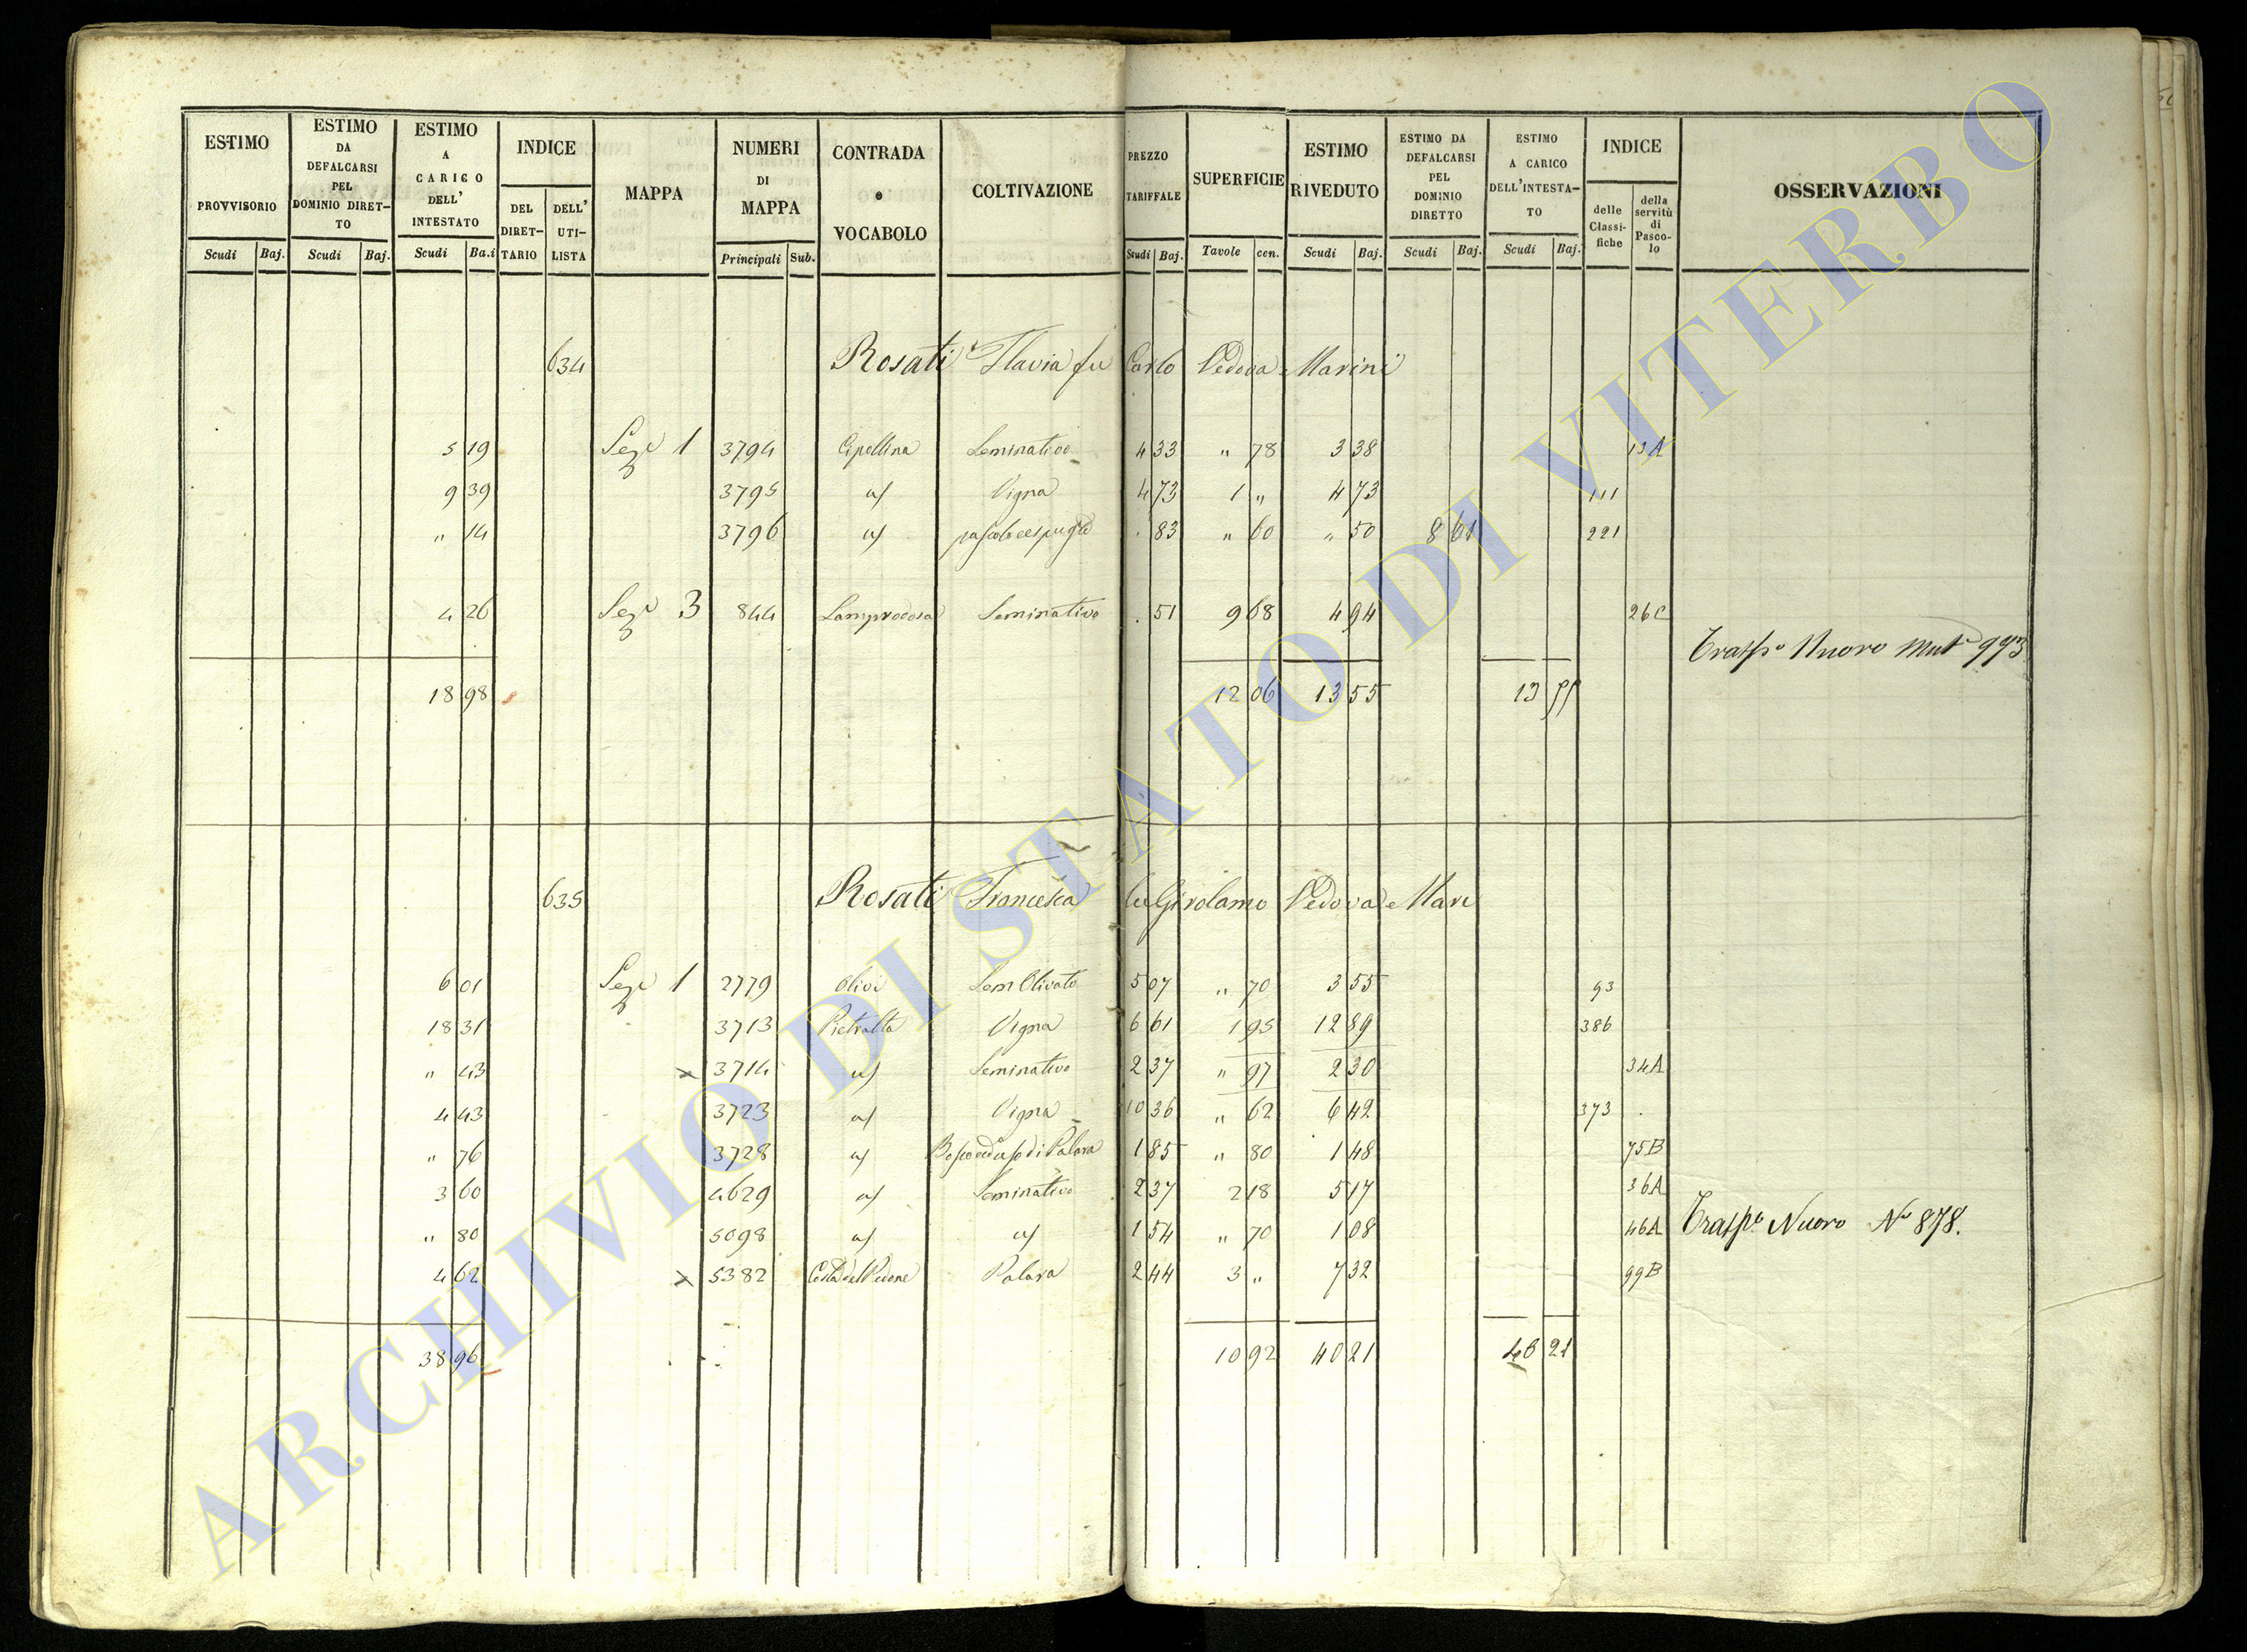 ESTIMO PROVVISORIO Scudi Baj.
ESTIMO DA DEFALCARSI PEL DOMINIO DIRET-TO Scudi Baj.
ESTIMO A CARICO DELL' INTESTATO Scudi Ba.i
INDICE DEL DIRET-TARIO DELL' UTI-LISTA
MAPPA
NUMERI DI MAPPA Principali Sub.
CONTRADA o VOCABOLO
COLTIVAZIONE
PREZZO TARIFFALE Scudi Baj.
SUPERFICIE Tavole cen.
ESTIMO RIVEDUTO Scudi Baj.
ESTIMO DA DEFALCARSI PEL DOMINIO DIRETTO Scudi Baj.
ESTIMO A CARICO DELL'INTESTA-TO Scudi Baj.
INDICE delle Classi-fiche della servitù di Pasco-lo
OSSERVAZIONI
634 Rosati Flavia fu Carlo Vedova Marini
5 19 Seze 1 3794 Cipollina Seminativo 4 33 " 78 3 38 13A
9 39 3795 a/ Vigna 4 73 1 " 4 73 111
" 14 3796 a/ . 83 " 60 " 50 8 61 221
4 26 Seze 3 844 Lamprocosa Seminativo . 51 9 68 4 94 26C
Trasp.o Nuovo Mut.e 993
18 98 12 06 13 55 13 55
635 Rosati Francesca fu Girolamo Vedova Mari
6 01 Seze 1 2779 Olivi Sem Olivato 5 07 " 70 3 55 93
18 31 3713 Pietralta Vigna 6 61 1 95 12 89 386
" 43 x 3714 a/ Seminativo 2 37 " 97 2 30 34A
4 43 3723 a/ Vigna 10 36 " 62 6 42 373
" 76 3728 a/ Bosco ed uso di Palara 1 85 " 80 1 48 75B
3 60 4629 a/ Seminativo 2 37 2 18 5 17 36A
" 80 5098 a/ a/ 1 54 " 70 1 08 46A Trasp.o Nuovo N.o 878.
4 62 x 5382 Costa del Pecone Palara 2 44 3 " 7 32 99B
38 96 10 92 40 21 40 21
ARCHIVIO DI STATO DI VITERBO